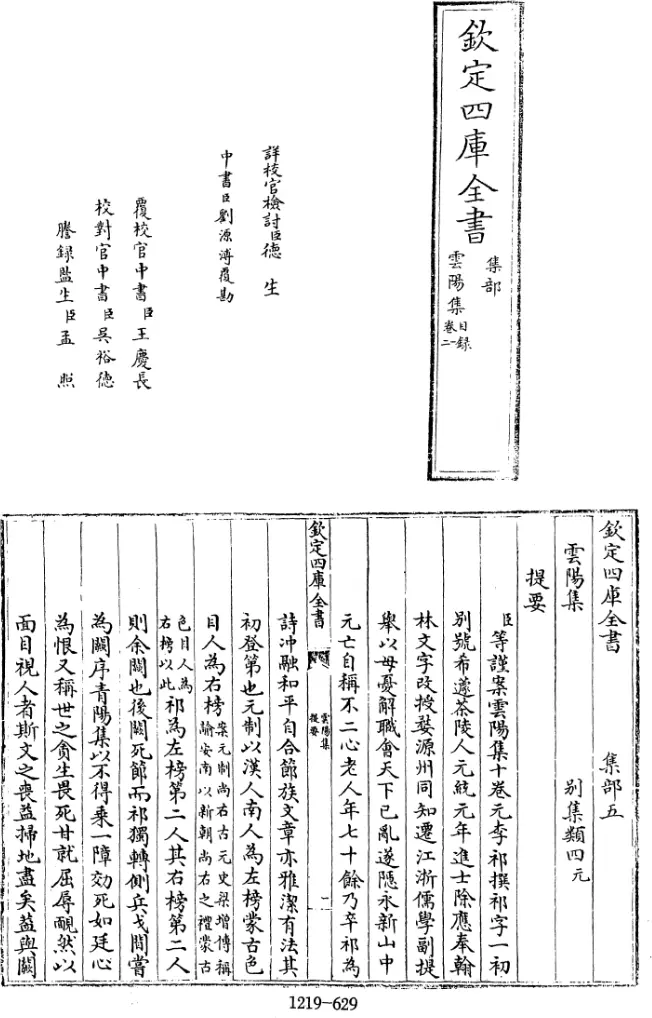 欽定四庫全書
集部
雲陽集
目録
卷一
二
詳校官檢討臣德生
中書臣劉源溥覆勘
覆校官中書臣王慶長
校對官中書臣吳裕德
謄録監生臣孟照
欽定四庫全書 集部五
雲陽集 别集類四元
提要
臣等謹案雲陽集十卷元李祁撰祁字一初
別號希蘧茶陵人元統元年進士除應奉翰
林文字改授婺源州同知遷江浙儒學副提
舉以母憂解職會天下已亂遂隱永新山中
元亡自稱不二心老人年七十餘乃卒祁為
欽定四庫全書 雲陽集 提要 一
詩沖融和平自合節族文章亦雅潔有法其
初登第也元制以漢人南人為左榜蒙古色
目人為右榜案元制尚右古元史梁增傳稱諭安南以新朝尚右之禮蒙古
色目人為右榜以此祁為左榜第二人其右榜第二人
則余闕也後闕死節而祁獨轉側兵戈間嘗
為闕序青陽集以不得乗一障効死如廷心
為恨又稱世之貪生畏死甘就屈辱靦然以
面目視人者斯文之喪益掃地盡矣蓋與闕
1219-629